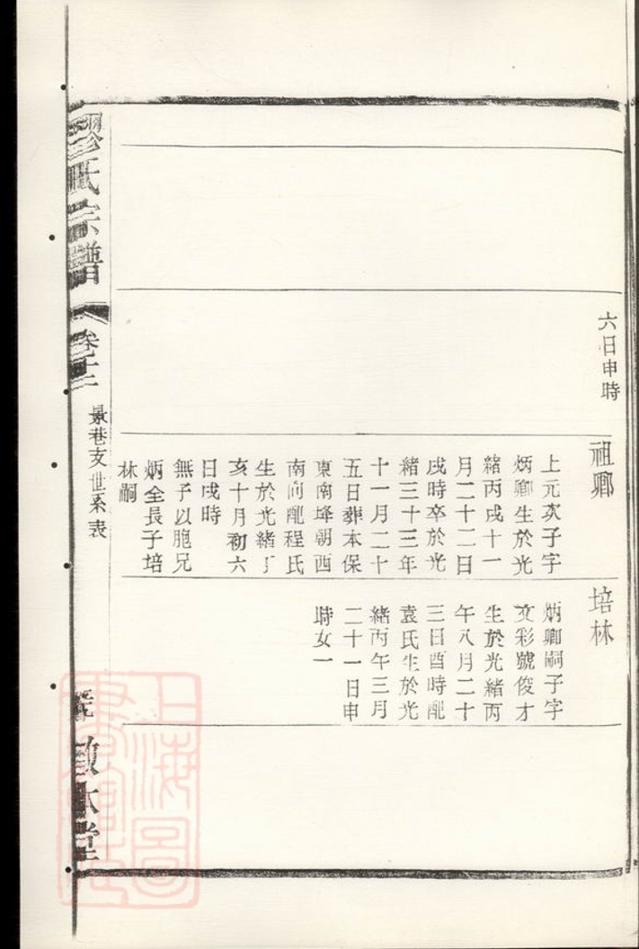 六日申時
祖卿
上元次子字
炳卿生於光
緒丙戌十一
月二十二日
戌時卒於光
緒三十三年
十一月二十
五日葬本保
東南埄朝西
南向配程氏
生於光緒丁
亥十月初六
日戌時
無子以胞兄
炳全長子培
林嗣
培林
炳卿嗣子字
文彩號俊才
生於光緒丙
午八月二十
三日酉時配
袁氏生於光
緒丙午三月
二十一日申
時女一
繆氏宗譜
卷十二
景巷支世系表
敘本堂
上海圖